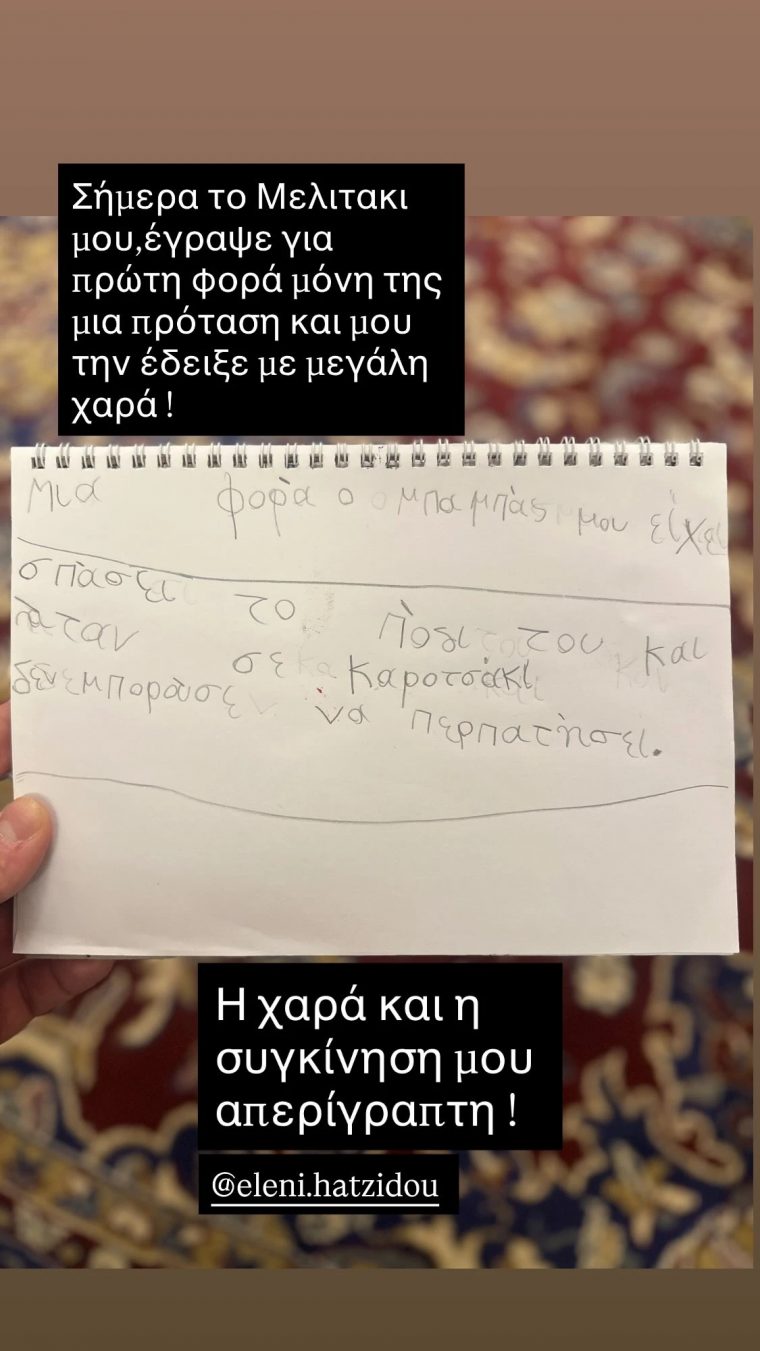 Σήμερα το Μελιτακι
μου,έγραψε για
πρώτη φορά μόνη της
μια πρόταση και μου
την έδειξε με μεγάλη
χαρά !
μια φορὰ ο μπαμπὰς μου είχε
σπὰσει το πὸδι του και
ὴταν σε καροτσὰκι
δενεμπορὰσε να περπατὴσει.
Η χαρά και η
συγκίνηση μου
απερίγραπτη !
@eleni.hatzidou